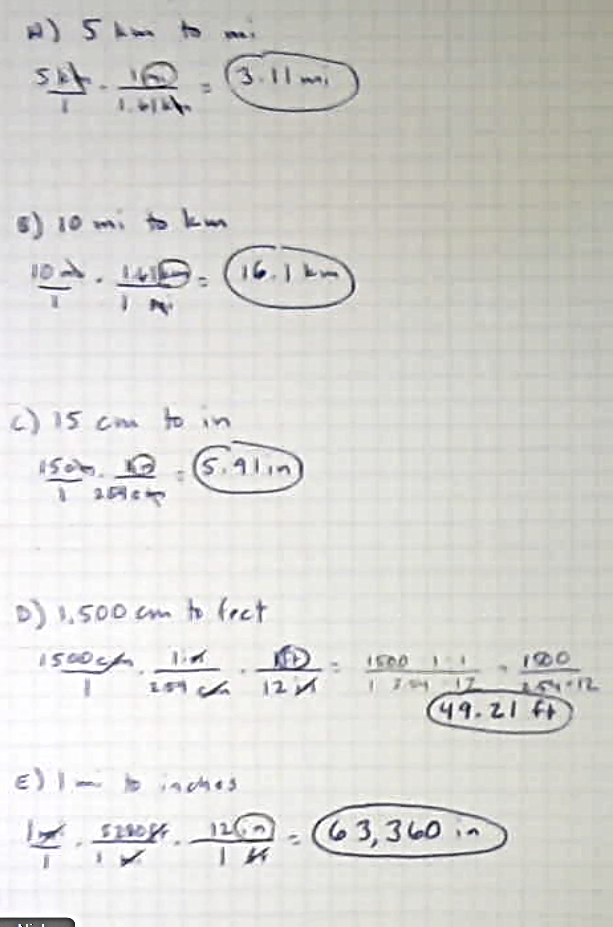 A) 5 km to mi
5 km/1 · 1 mi/1.61 km = 3.11 mi
B) 10 mi to km
10 mi/1 · 1.61 km/1 mi = 16.1 km
C) 15 cm to in
15 cm/1 · 1 in/2.54 cm = 5.91 in
D) 1,500 cm to feet
1500 cm/1 · 1 in/2.54 cm · 1 ft/12 in = 1500 · 1 · 1/1 · 2.54 · 12 = 1500/2.54·12
49.21 ft
E) 1 mi to inches
1 mi/1 · 5280 ft/1 mi · 12 in/1 ft = 63,360 in